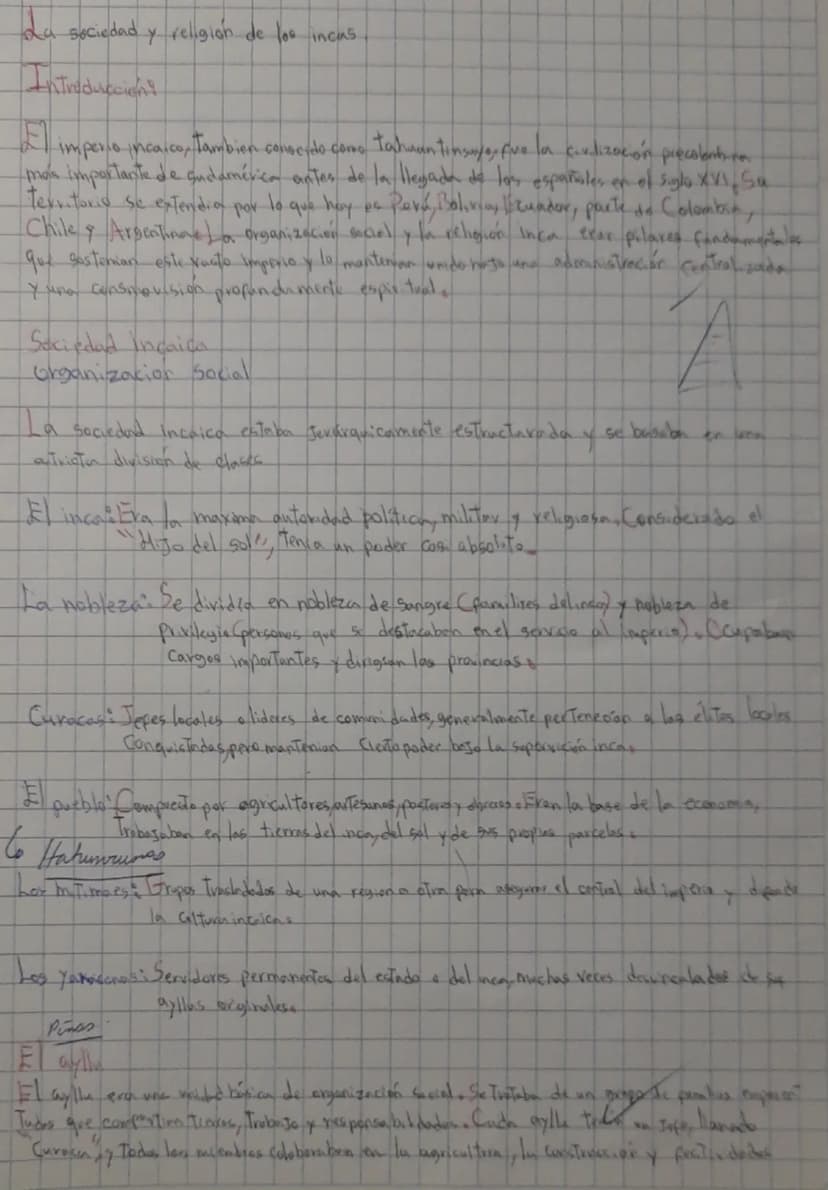 La sociedad y religión de los incas.
Introducción:
El imperio incaico, tambien conocido como tahuantinsuyo, fue la civilización precolombina
más importante de sudamérica antes de la llegada de los españoles en el siglo XVI. Su
territorio se extendia por lo que hoy es Perú, Bolivia, Ecuador, parte de Colombia,
Chile y Argentina. La organización social y la religión inca eran pilares fundamentales
que sostenian este vasto imperio y lo mantenian unido bajo una administración centralizada
y una cosmovisión profundamente espiritual.
Sociedad incaica
organización social
La sociedad incaica estaba jerárquicamente estructurada y se basaba en una
estricta división de clases
El inca: Era la maxima autoridad política, militar y religiosa. Considerado el
"Hijo del sol", Tenia un poder casi absoluto.
La nobleza: Se dividía en nobleza de sangre (familires del inca) y nobleza de
Privilegio (personas que se destacaban en el servicio al imperio). Ocupaban
Cargos importantes y dirigian las provincias.
Curacas: Jefes locales o lideres de comunidades, generalmente pertenecian a las élites locales
Conquistadas, pero mantenian cierto poder bajo la supervición inca.
El pueblo: Compuesto por agricultores, artesanos, pastores y obreros. Eran la base de la economia,
Trabajaban en las tierras del inca, del sol y de sus propias parcelas.
Hatunrunas
Los mitimaes: Grupos trasladados de una region a otra para asegurar el control del imperio y
la cultura incaica.
Los yanaconas: Servidores permanentes del estado o del inca, muchas veces desvinculados de su
ayllus originales.
Piñas
El ayllu
El ayllu era una unidad básica de organización social. Se Trataba de un grupo de familias
que compartian Tierras, Trabajo y responsabilidades. Cada ayllu un Jefe, llamado
"Curaca", y Todos los miembros colaboraban en la agricultura, la construccion y festividades